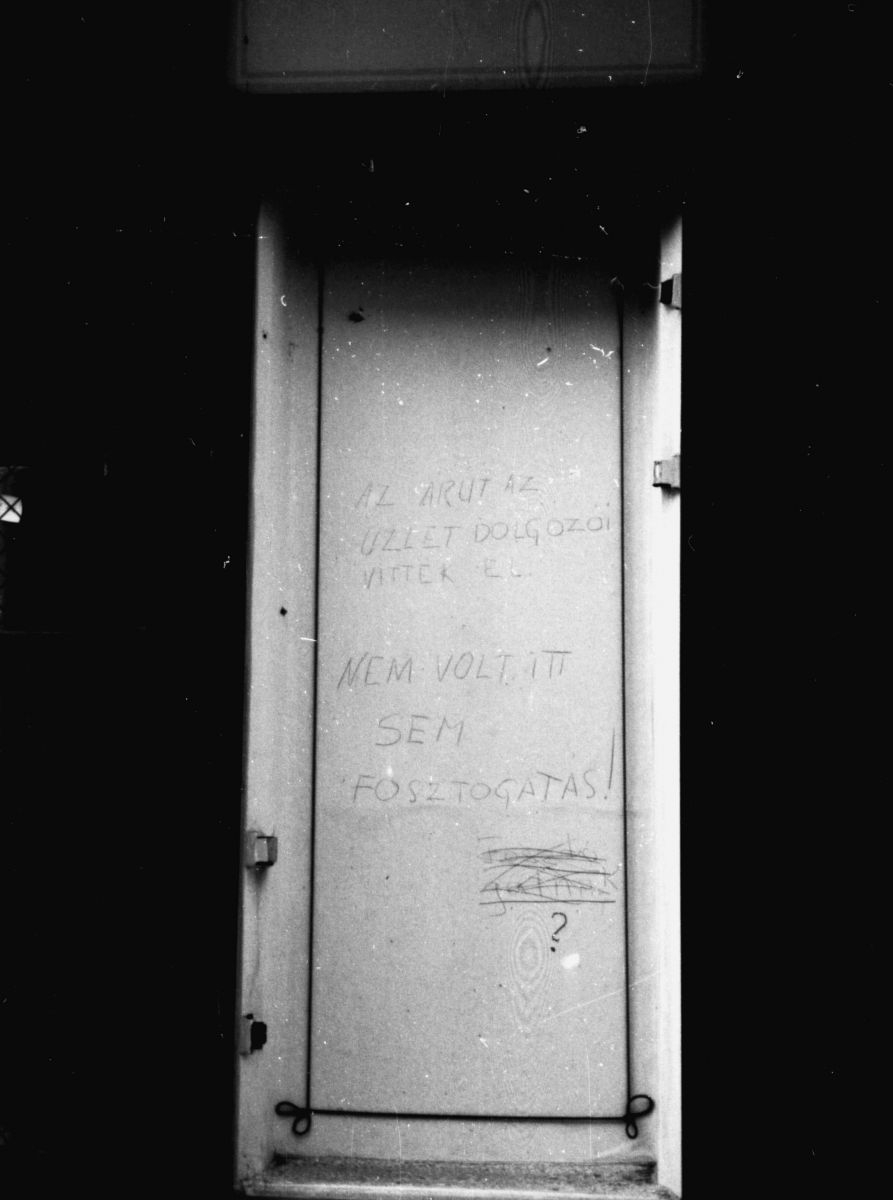 AZ ARUT AZ
ÜZLET DOLGOZÓI
VITTÉK EL.
NEM VOLT ITT
SEM
FOSZTOGATÁS!
?